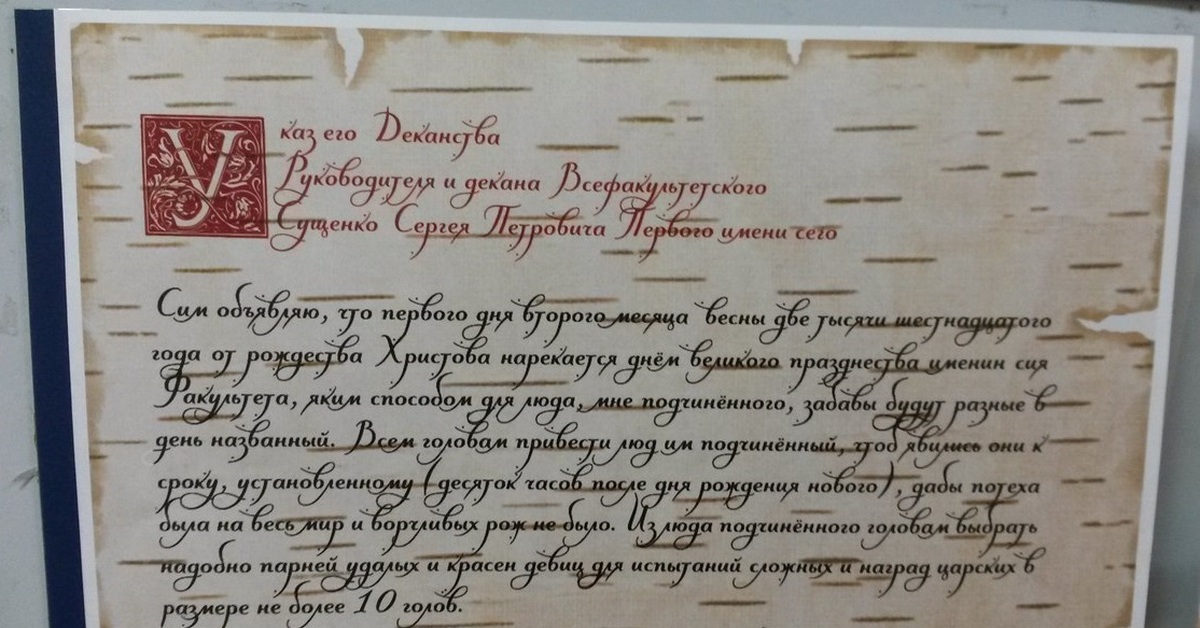 Указ его Деканства
Руководителя и декана Всефакультетского
Сущенко Сергея Петровича Первого имени сего
Сим объявляю, что первого дня второго месяца весны две тысячи шестнадцатого
года от рождества Христова нарекается днём великого празднества именин сия
Факультета, яким способом для люда, мне подчинённого, забавы будут разные в
день названный. Всем головам привести люд им подчинённый, чтоб явились они к
сроку, установленному (десяток часов после дня рождения нового), дабы потеха
была на весь мир и ворчливых рож не было. Из люда подчинённого головам выбрать
надобно парней удалых и красен девиц для испытаний сложных и наград царских в
размере не более 10 голов.